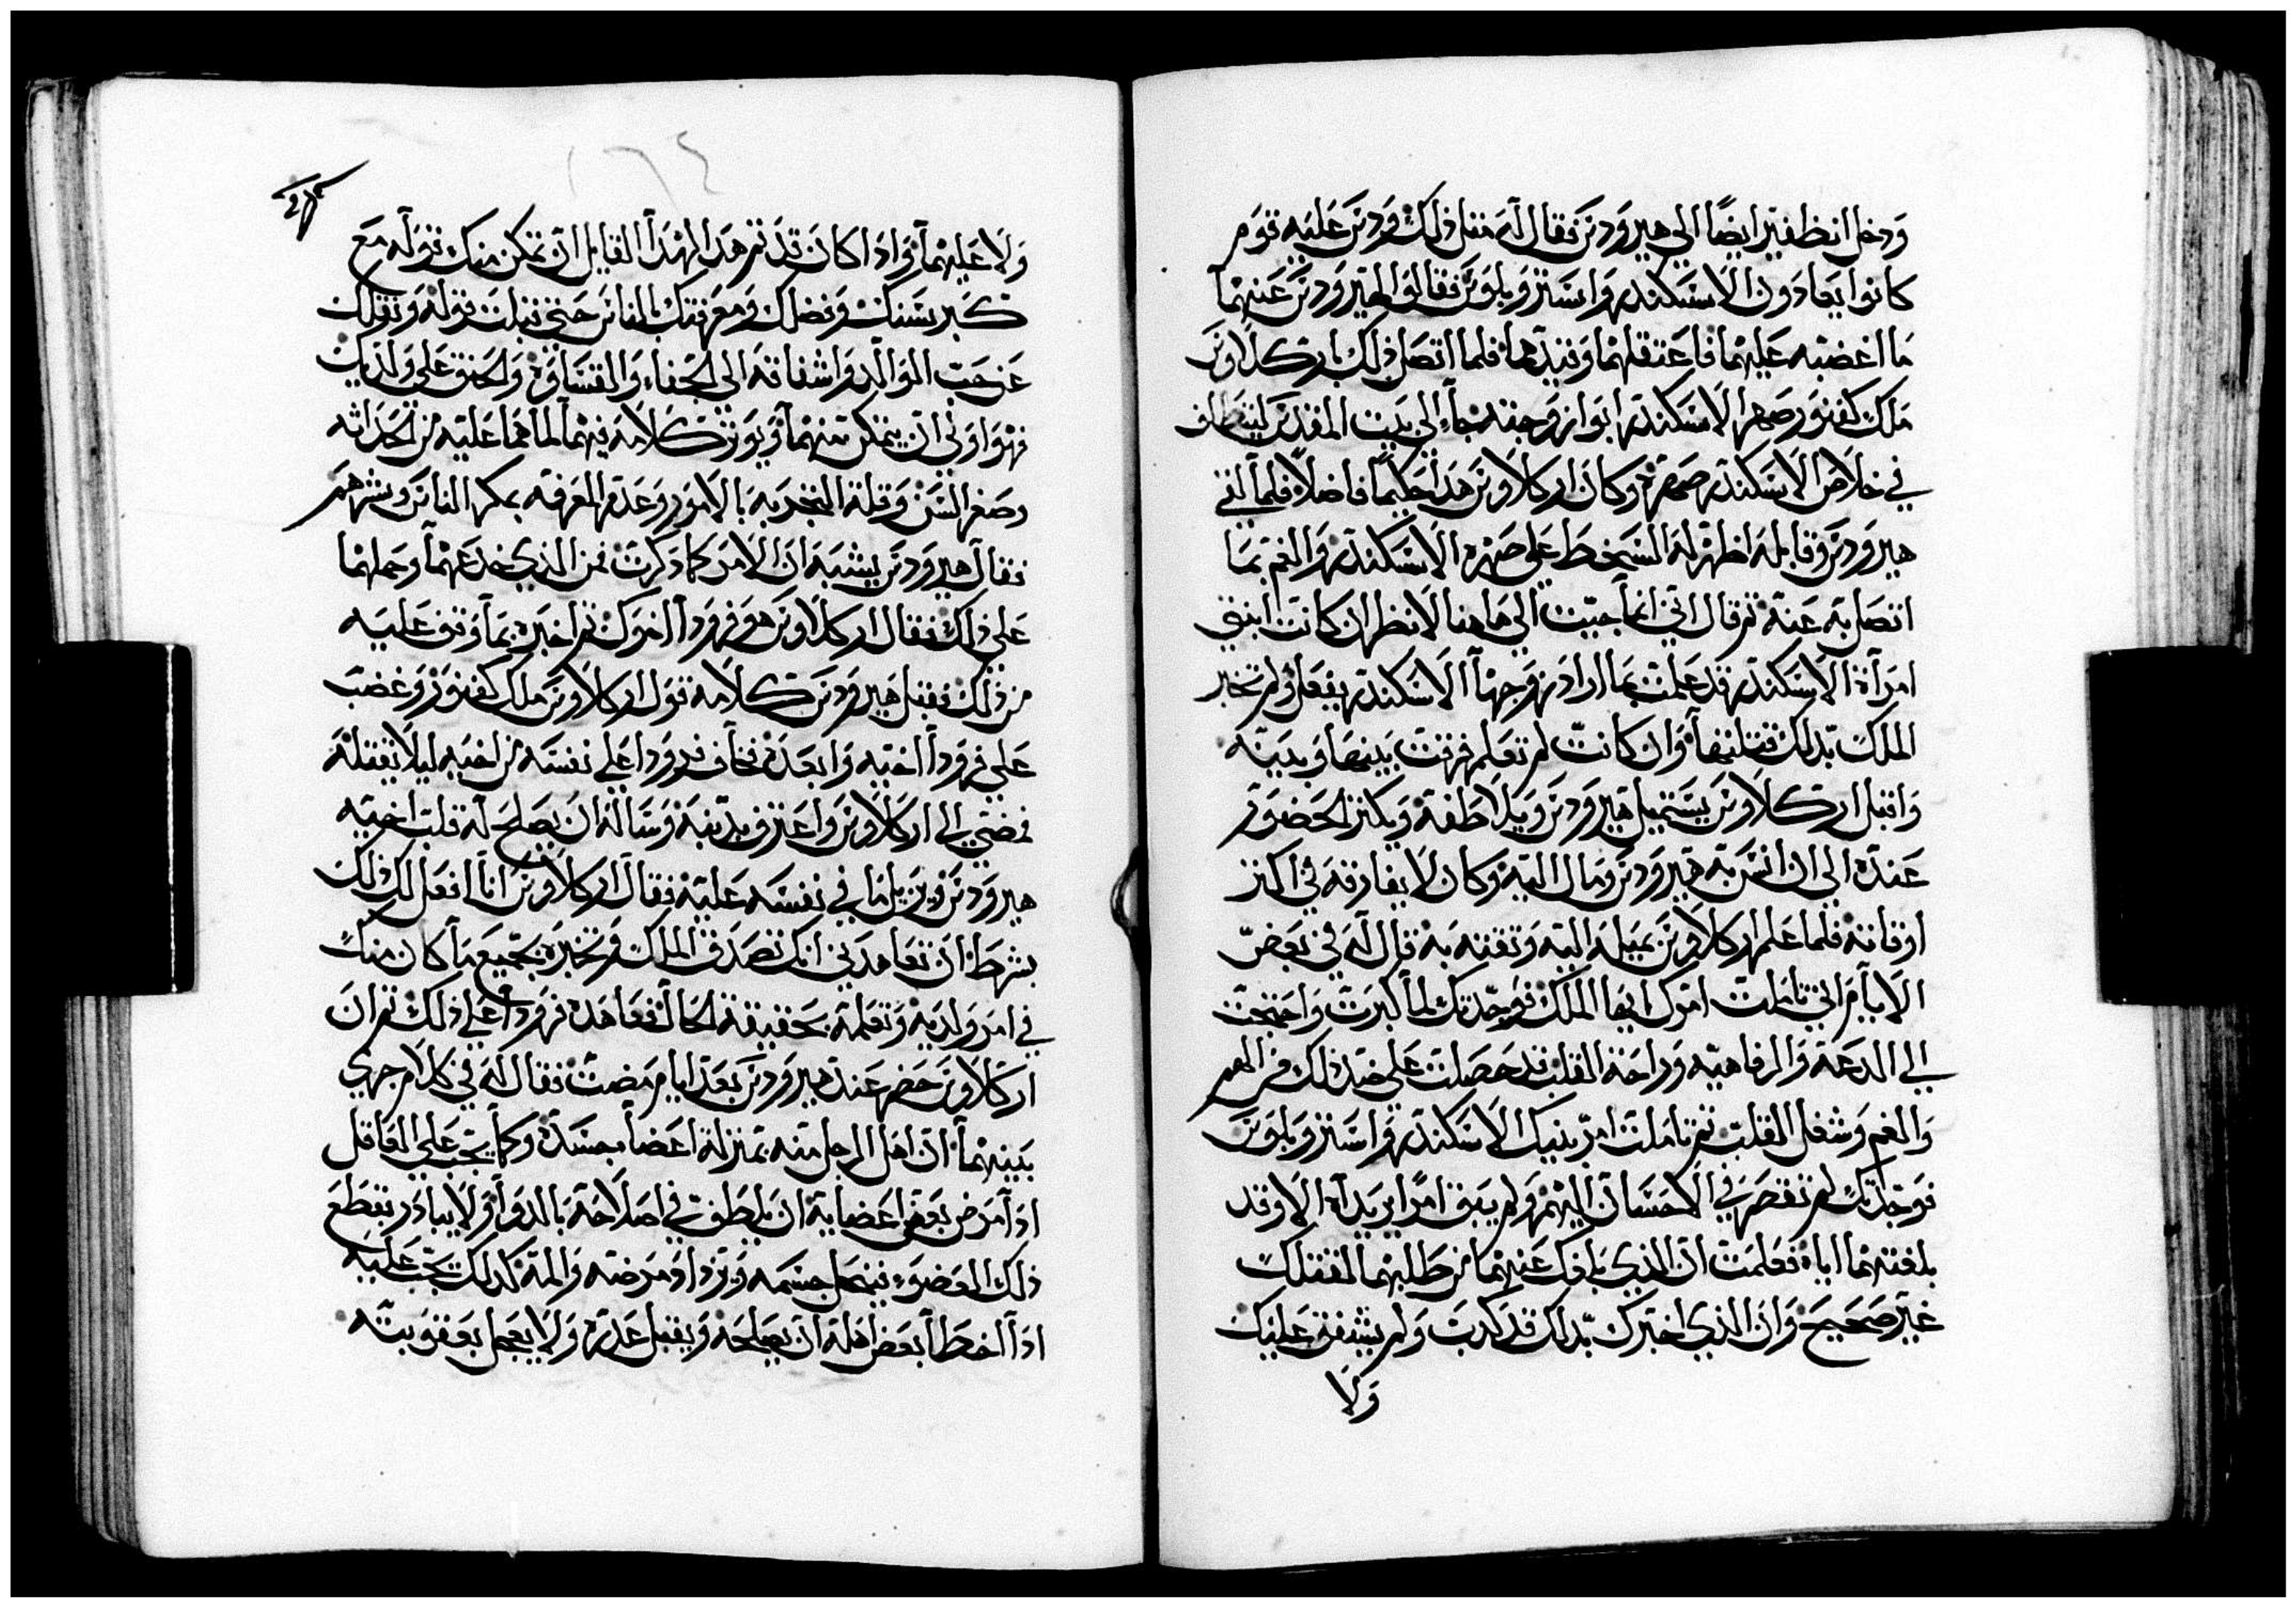 ودخل انطفتير ايضًا الي هيرودس فقال له مثل ذلك ودس عليه قوم
كانوا يعادون الاسكندر وارستوبلوس فقالوا لهيرودس عنهما
ما اغضبه عليهما فاعتقلهما وقيدهما فلما اتصل ذلك باركلاوس
ملك كفتور صهر الاسكندر ابو زوجته جاء الي بيت المقدس ليتلطف
في خلاص الاسكندر صهره وكان اركلاوس هذا حكيمًا فاضلاً فلما لقي
هيرودس وقابله اظهر له السخط علي صهره الاسكندر والغم بما
اتصل به عنه ثم قال اني انما جيت الي هاهنا لانظر ان كانت ابنتي
امرأة الاسكندر قد علمت بما اراد زوجها الاسكندر يفعل ولم تخبر
الملك بذلك قتلتها وان كانت لم تعلم فرقت بينها وبينه
واقبل اركلاوس يستميل هيرودس ويلاطفه ويكثر الحضور
عنده الي ان انس به هيرودس ومال اليه وكان لا يفارقه في اكثر
اوقاته فلما علم اركلاوس بميله اليه وثقته به قال له في بعض
الايام اني تاملت امرك ايها الملك فوجدتك لما كبرت واحتجت
الي الدعة والرفاهيه وراحة القلب قد حصلت علي ضد ذلك من الهم
والغم وشغل القلب ثم تاملت امر بنيك الاسكندر وارستوبلوس
فوجدتك لم تقصر في الاحسان اليهم ولم يبق امرًا يريداه الا وقد
بلغتهما اياه فعلمت ان الذي بلغك عنهما من طلبهما لقتلك
غير صحيح وان الذي اخبرك بذلك قد كذب ولم يشفق عليك
ولا
ولا عليهما واذا كان قد تم هذا لهذا القايل ان تمكن منك قوله مع
كبر سنك وفضلك ومعرفتك بالناس حتي قبلت قوله ونقلك
عن حب الوالد واشفاقه الي الجفاء والقساوة والحنق علي ولديك
فهو اولي ان يتمكن منهما ويوثر كلامه فيهما لما هما عليه من الحداثه
وصغر السن وقلة التجربه بالامور وعدم المعرفه بمكر الناس وشرهم
فقال هيرودس يشبه ان الامر كما ذكرت فمن الذي خدعهما وحملهما
علي ذلك فقال اركلاوس هو فرودا اخوك ثم اخبره بما وقف عليه
من ذلك فقبل هيرودس كلامه قول اركلاوس ملك كفتور وغضب
علي فرودا اخيه وابعده فخاف فرودا علي نفسه من اخيه ليلا يقتله
فمضي الي اركلاوس واعترف بذنبه وساله ان يصلح له قلب اخيه
هيرودس ويزيل ما في نفسه عليه فقال اركلاوس انا افعل لك ذلك
بشرط ان تعاهدني انك تصدق الملك وتخبره بجميع ما كان منك
في امر ولديه وتعلمه بحقيقة الحال فعاهده فرودا علي ذلك ثم ان
اركلاوس حضر عند هيرودس بعد ايام مضت فقال له في كلام جري
بينهما ان اهل الرجل منه بمنزلة اعضا جسده وكما يجب علي العاقل
اذا مرض بعض اعضايه ان يلطف في اصلاحه بالدوا ولا يبادر بقطع
ذلك العضو فينحل جسمه ويزداد مرضه والمه كذلك يجب عليه
اذا اخطا بعض اهله ان يصلحه ويقبل عذره ولا يعجل بعقوبته